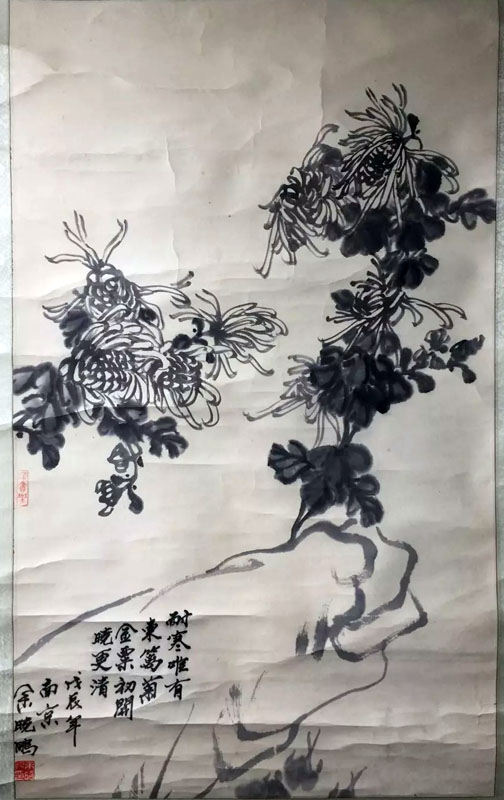 耐寒唯有
東篱菊
金粟初開
曉更清
戊辰年
南京
余曉鵬